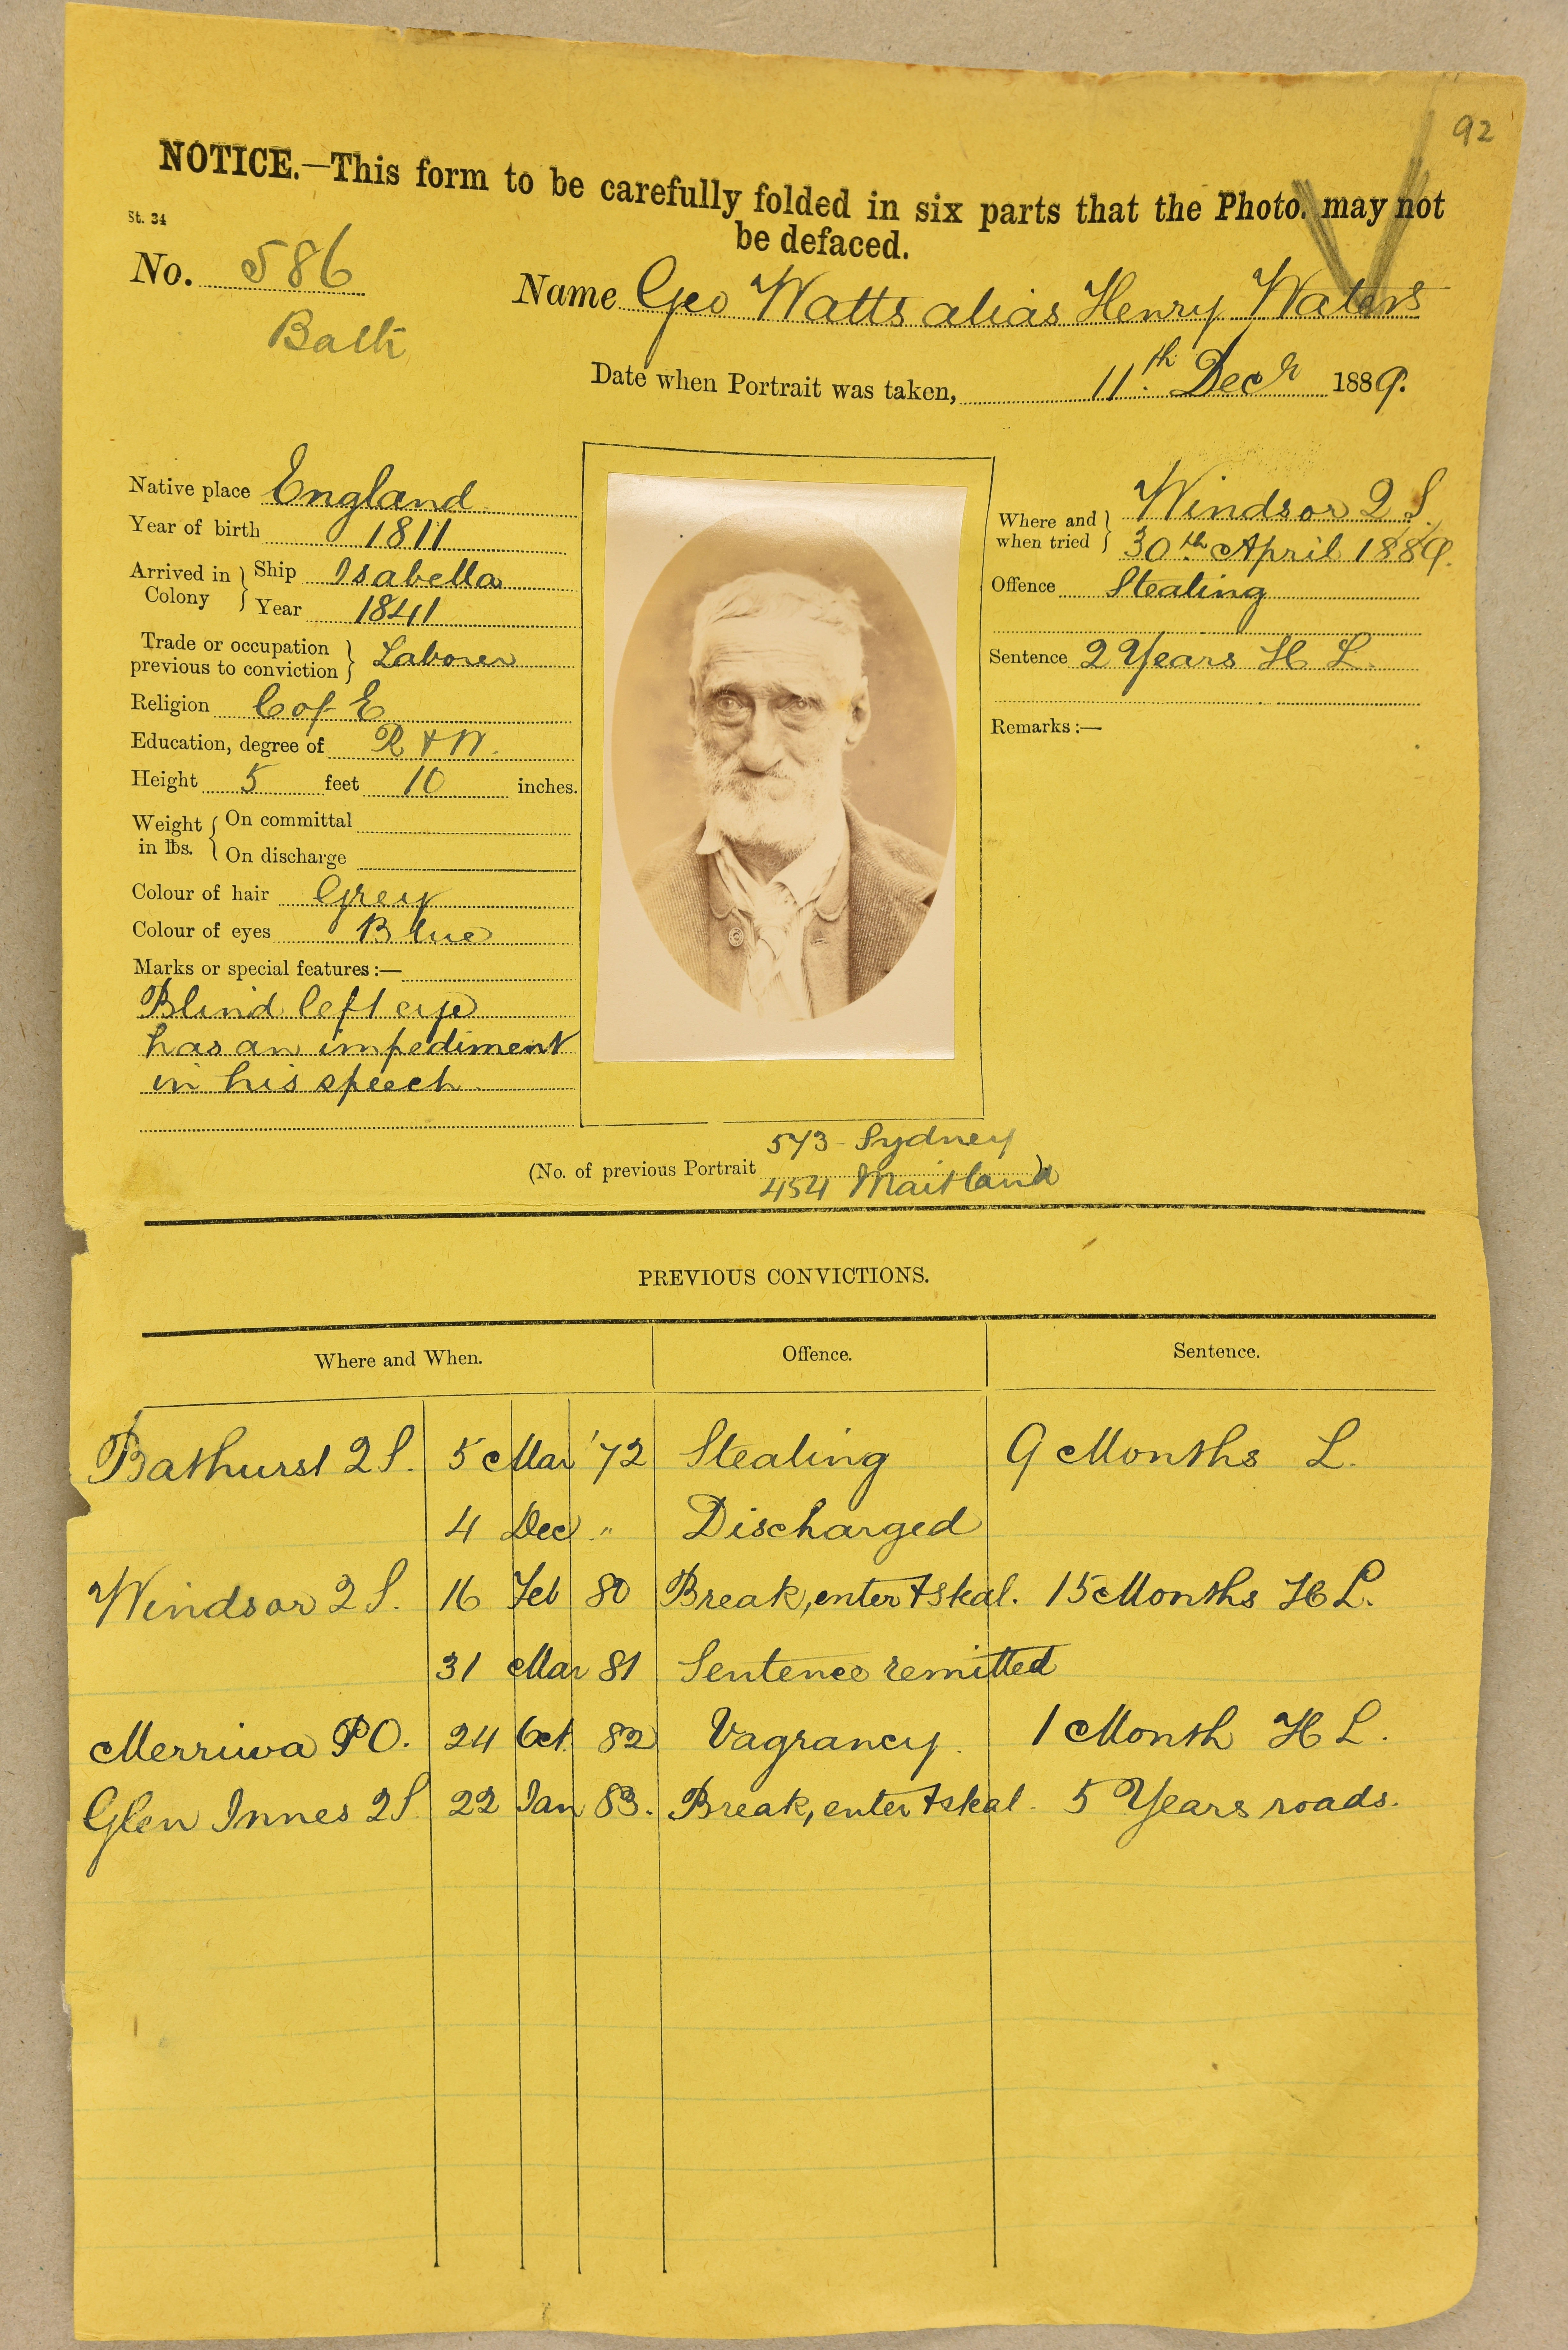 92
NOTICE.—This form to be carefully folded in six parts that the Photo. may not
be defaced.
St. 34
No. 586
Bath
Name Geo Watts alias Henry Waters
Date when Portrait was taken, 11th Decr 1889.
Native place England
Year of birth 1811
Arrived in Colony } Ship Isabella
Year 1841
Trade or occupation previous to conviction } Laborer
Religion C of E
Education, degree of R & W.
Height 5 feet 10 inches.
Weight in lbs. { On committal
On discharge
Colour of hair Grey
Colour of eyes Blue
Marks or special features:—
Blind left eye
has an impediment
in his speech
Where and when tried } Windsor Q S.
30th April 1889.
Offence Stealing
Sentence 2 Years H L.
Remarks:—
(No. of previous Portrait 573 - Sydney
454 Maitland)
PREVIOUS CONVICTIONS.
Where and When. Offence. Sentence.
Bathurst Q S. 5 Mar '72 Stealing 9 Months L.
4 Dec " Discharged
Windsor Q S. 16 Feb 80 Break, enter & steal. 15 Months H L.
31 Mar 81 Sentence remitted
Merriwa P O. 24 Oct. 82 Vagrancy. 1 Month H L.
Glen Innes Q S 22 Jan 83. Break, enter & steal. 5 Years roads.